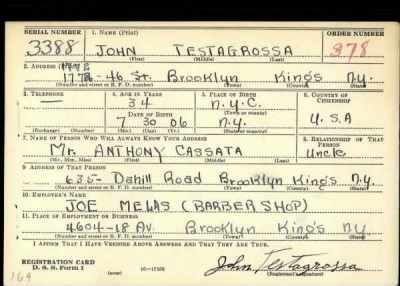 SERIAL NUMBER 1. NAME (Print) ORDER NUMBER
3388 JOHN TESTAGROSSA 378
(First) (Middle) (Last)
2. ADDRESS (Print)
1772
1774-46 St. Brooklyn King's N.Y.
(Number and street or R. F. D. number) (Town) (County) (State)
3. TELEPHONE 4. AGE IN YEARS 5. PLACE OF BIRTH 6. COUNTRY OF CITIZENSHIP
34 N.Y.C.
DATE OF BIRTH (Town or county)
7 30 06 N.Y. U.S.A
(Exchange) (Number) (Mo.) (Day) (Yr.) (State or country)
7. NAME OF PERSON WHO WILL ALWAYS KNOW YOUR ADDRESS 8. RELATIONSHIP OF THAT PERSON
Mr. ANTHONY CASSATA Uncle
(Mr., Mrs., Miss) (First) (Middle) (Last)
9. ADDRESS OF THAT PERSON
635- Dahill Road Brooklyn King's N.Y.
(Number and street or R. F. D. number) (Town) (County) (State)
10. EMPLOYER'S NAME
JOE MELAS (BARBER SHOP)
11. PLACE OF EMPLOYMENT OR BUSINESS
4604-18 Av. Brooklyn King's N.Y.
(Number and street or R. F. D. number) (Town) (County) (State)
I AFFIRM THAT I HAVE VERIFIED ABOVE ANSWERS AND THAT THEY ARE TRUE.
REGISTRATION CARD
D. S. S. Form 1 (over) 16-17105 John Testagrossa
(Registrant's signature)
169